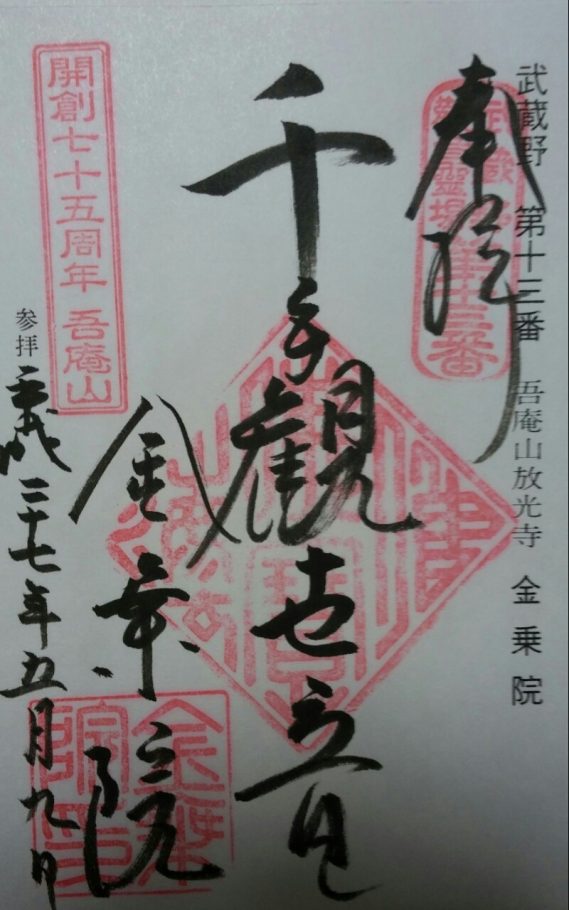 武蔵野 第十三番 吾庵山放光寺 金乗院
奉拝
霊場
第十三番
千手觀世音
金乗院
開創七十五周年 吾庵山
参拝 平成二十七年五月九日